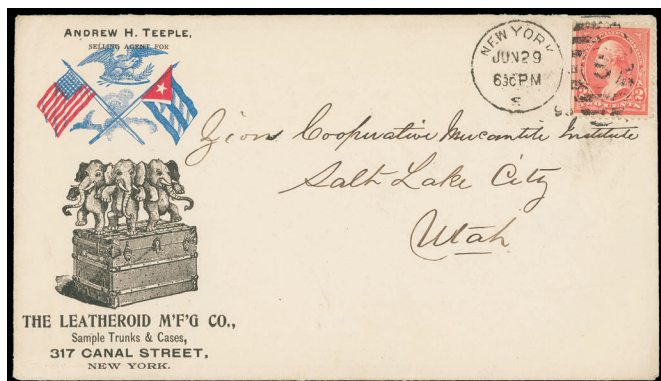 ANDREW H. TEEPLE,
SELLING AGENT FOR
NEW YORK
JUN 29
630PM
TWO CENTS
Zion Cooperative Mercantile Institute
Salt Lake City
Utah
THE LEATHEROID M'F'G CO.,
Sample Trunks & Cases,
317 CANAL STREET,
NEW YORK.